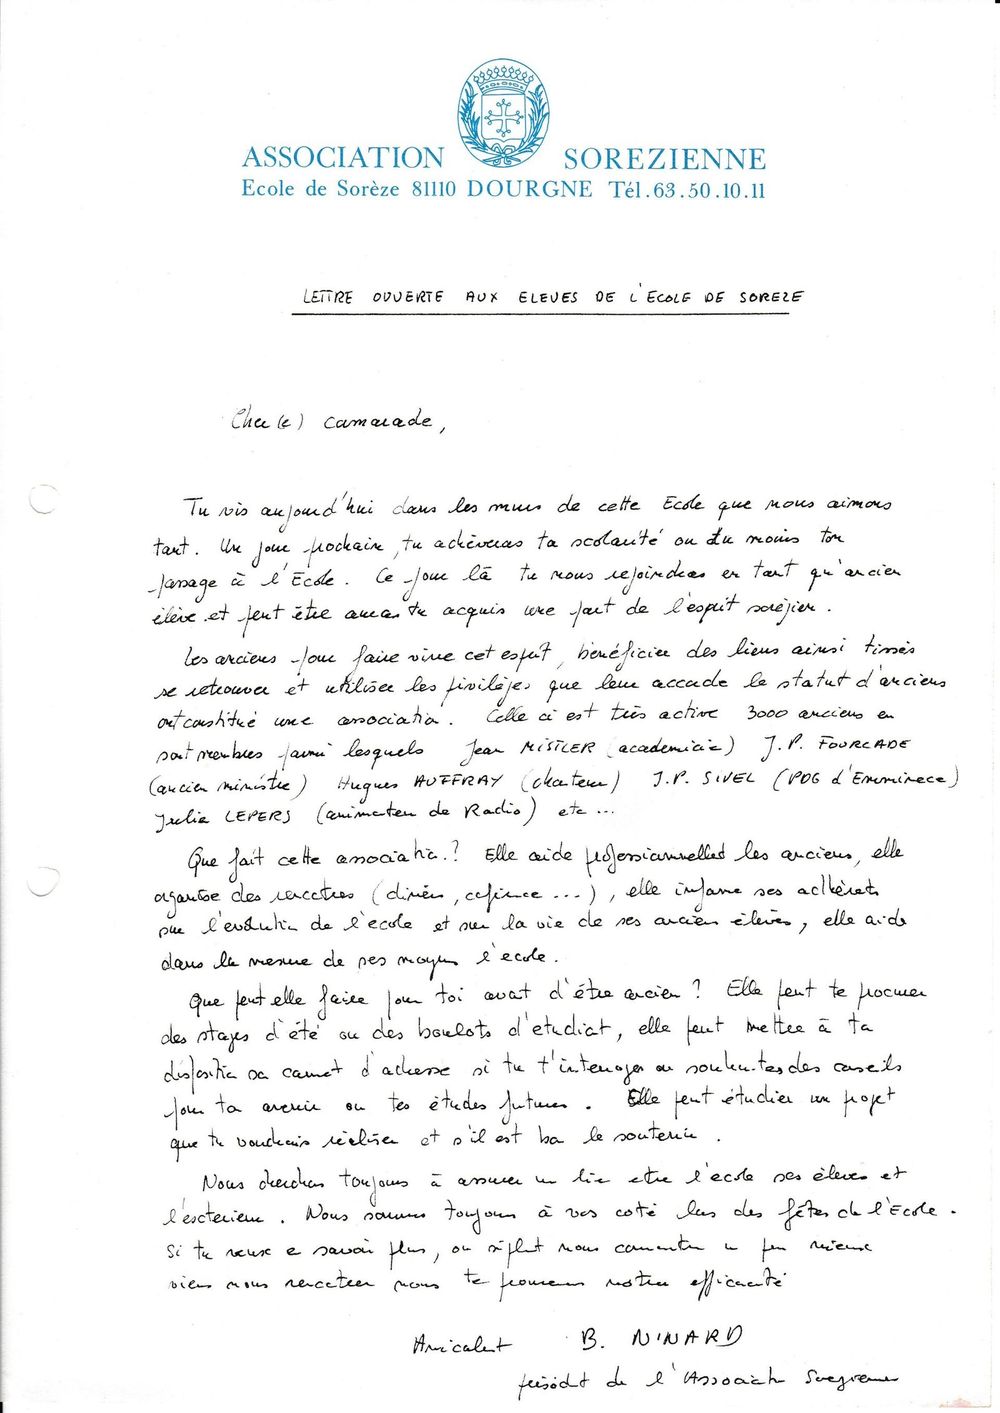 ASSOCIATION SOREZIENNE
Ecole de Sorèze 81110 DOURGNE Tél.63.50.10.11
LETTRE OUVERTE AUX ELEVES DE L'ECOLE DE SOREZE
Cher(e) camarade,
Tu vis aujourd'hui dans les murs de cette Ecole que nous aimons
tant. Un jour prochain, tu achèveras ta scolarité ou du moins ton
passage à l'Ecole. Ce jour là tu nous rejoindras en tant qu'ancien
élève et peut être auras tu acquis une part de l'esprit sorézien.
Les anciens pour faire vivre cet esprit, bénéficier des liens ainsi tissés
se retrouver et utiliser les privilèges que leur accorde le statut d'anciens
ont constitué une association. Celle ci est très active 3000 anciens en
sont membres parmi lesquels Jean MISTLER (academicien) J.P. FOURCADE
(ancien ministre) Hugues AUFFRAY (chanteur) J.P. SIVEL (PDG d'Emminece)
Julien LEPERS (animateur de Radio) etc ...
Que fait cette association? Elle aide professionnellet les anciens, elle
organise des rencontres (dîners, conférence ...), elle informe ses adhérents
sur l'evolution de l'école et sur la vie de ses anciens élèves, elle aide
dans la mesure de ses moyens l'école.
Que peut elle faire pour toi avant d'être ancien? Elle peut te procurer
des stages d'été ou des boulots d'etudiant, elle peut mettre à ta
disposition son carnet d'adresse si tu t'interroges ou souhaites des conseils
pour ton avenir ou tes études futures. Elle peut étudier un projet
que tu voudrais réaliser et s'il est bon le soutenir.
Nous cherchons toujours à assurer un lien entre l'école ses élèves et
l'exterieur. Nous sommes toujours à vos coté lors des fêtes de l'Ecole.
Si tu veux en savoir plus, ou simplt nous connaitre un peu mieux
viens nous rencontrer nous te prouverons notre efficacité
Amicalent B. NINARD
présidt de l'Association Sorezienne